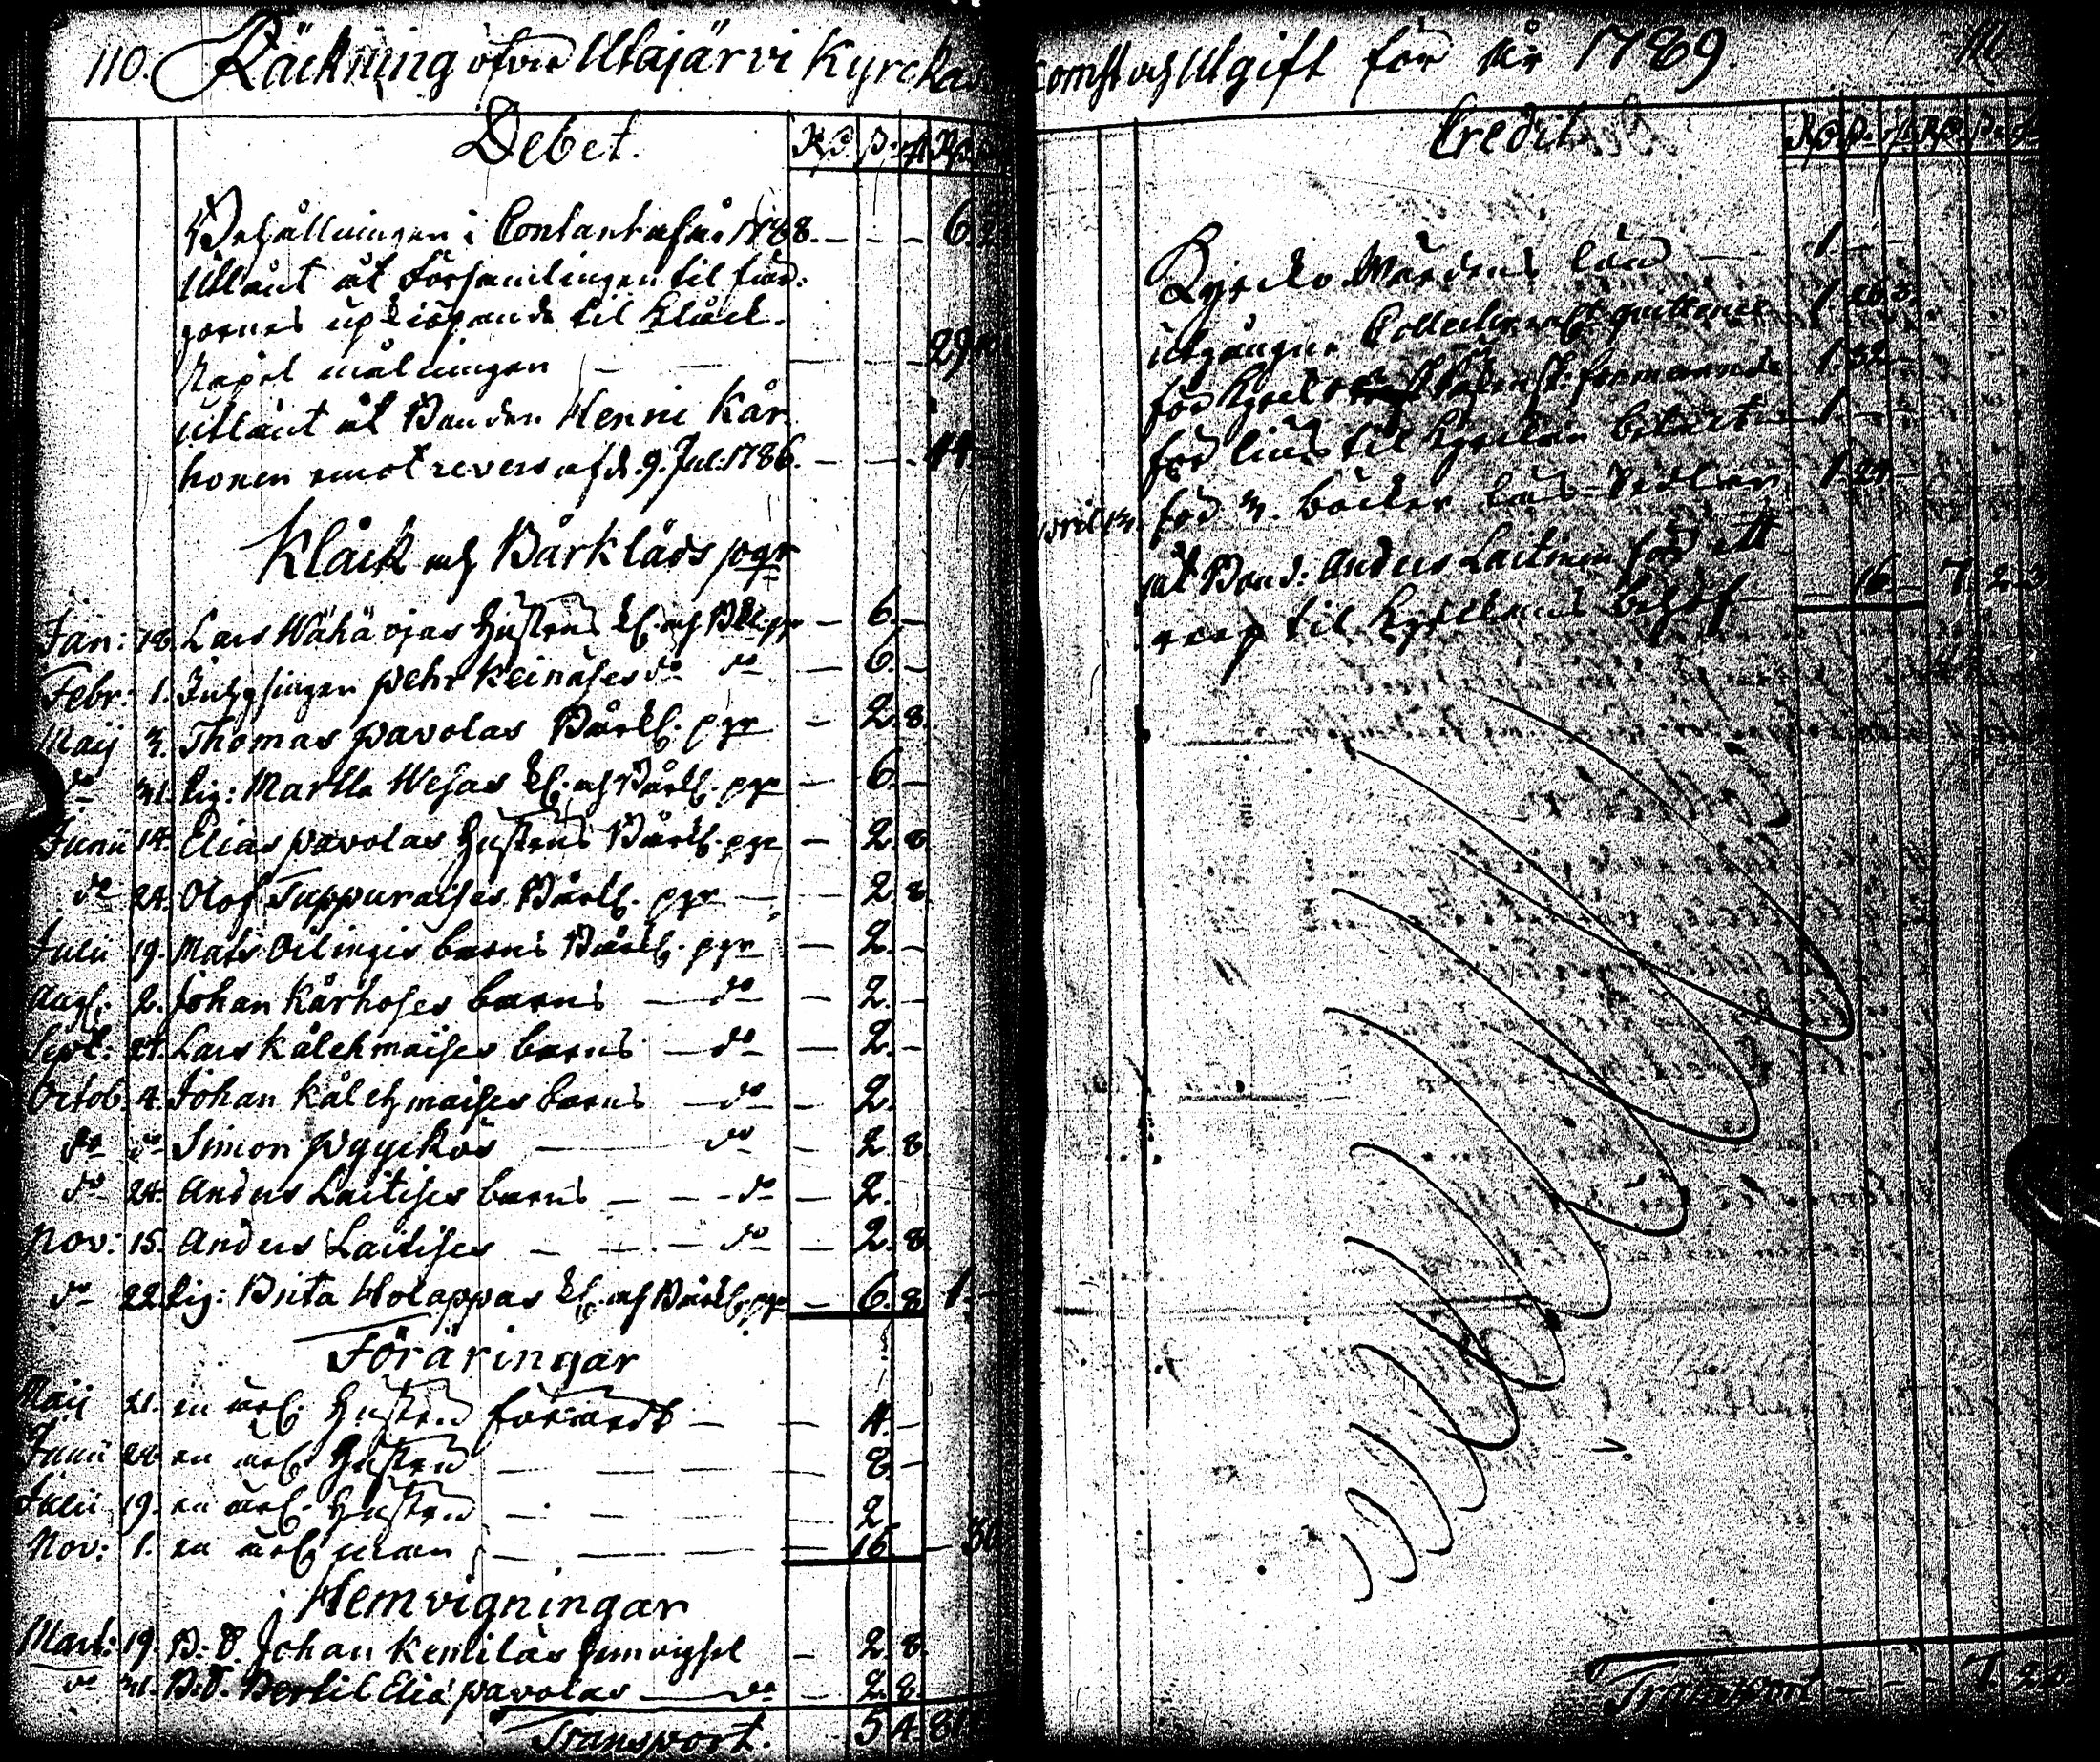 110. Räckning öfver Utajärvi Kyrckas
Debet.
Behållningen i Contant ifrån 1788. — — — 6.
Utlånt åt Församlingen til fär-
gornes upkiöpande til Klåck-
stapel målningen — — — 29
utlånt åt Bonden Henric Kår
honen emot revers af d. 9. Jul: 1786. — — 44
Klåck och Bårklåds pgr
Jan: 18. Lars Wähä ojas Hustrus kl. och Bkl. pgr — 6. —
Febr: 1. Inhysingen Pehr Keinäses do do — 6. —
Maij 3. Thomas Pavolas Bårkl. pgr — 2. 8.
do 31. Pig: Martha Wesas kl. och Bårkl. pgr — 6. —
Junii 14. Elias Pavolas Hustrus Bårkl. pgr — 2. 8.
do 24. Olof Tuppuraises Bårkl. pgr — 2. 8.
Julii 19. Mats Oilingis barns Bårkl. pgr — 2. —
Aug: 2. Johan Kårhoses barns — do — 2. —
Sept: 27. Lars Kålehmaises barns — do — 2. —
Octob. 4. Johan Kålehmaises barns — do — 2.
do do Simon Pyyckös — do — 2. 8.
do 24. Anders Laitises barns — — do — 2.
Nov: 15. Anders Laitises — — — do — 2. 8.
do 22. Pig: Brita Holappas kl. och Bårkl. pgr — 6. 8. 1. —
Föräringar
Maij 21. en ärl. Hustru förärdt — — 4. —
Junii 24. en ärl. Hustru — — — 8. —
Julii 19. en ärl. Hustru — — — 2.
Nov: 1. en ärl. man — — — 16. — 30
Hemvigningar
Mart: 19. B. D. Johan Kemiläs hemvigsel — 2. 8.
do 31. B. D. Bertil Eliæ Pavolas — do — 2. 8.
Transport. 5 4. 81
komst och Utgift för År 1789. 111
Credit
Kyrcko Wärdens lön — 1. —
utgångne Collecter efter quittencer 1. 26. 3.
för Kyrck
för lius til Kyrckan betalt 1. —
April 13. för 3. böcker 1. 24
åt Bond: Anders Laitinen för ett
rep til Kyrckans behof — 16. — 7. 2. 3
Transport — — 7. 2.